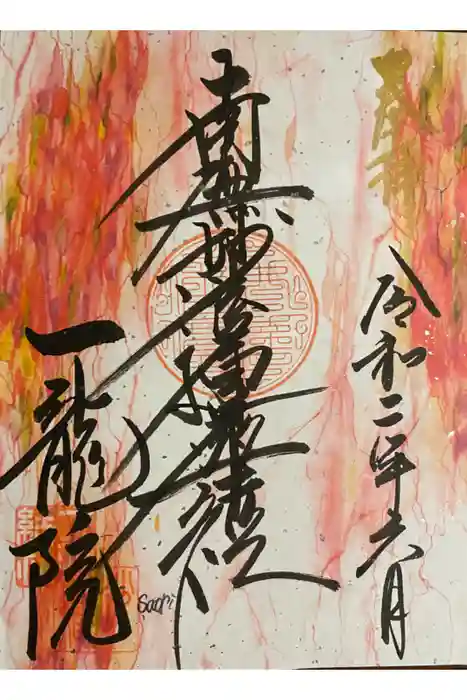 奉拝
令和二年六月
南無妙法蓮華経
一龍院
Saori